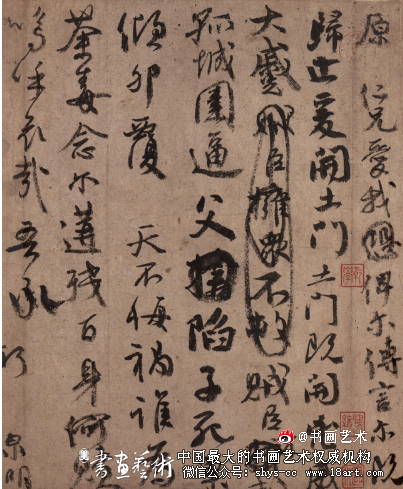 原 仁兄愛我俾尔傳言尔既
歸止爰開土門土門既開
大蹙賊臣擁衆不救賊臣
孤城圍逼父陷子死
傾卵覆 天不悔禍誰
荼毒念尔遘殘百身何
嗚呼哀哉吾承
泉明
@书画艺术
書畫藝術
中国最大的书画艺术权威机构
微信公众号：shys-cc www.18art.com